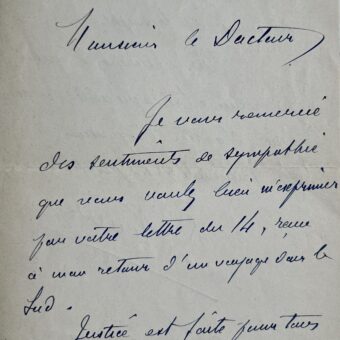 Monsieur le Docteur,
Je vous remercie
des sentiments de sympathie
que vous voulez bien m'exprimer
par votre lettre du 14, reçue
à mon retour d'un voyage dans le
Sud.
Justice est faite pour tous